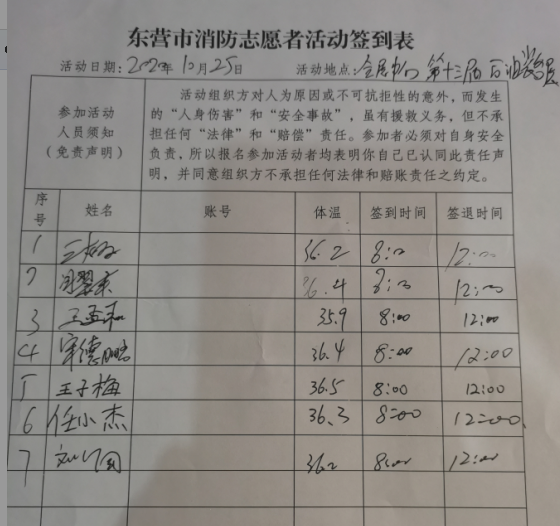 东营市消防志愿者活动签到表
活动日期:2020年10月25日 活动地点: 第十三届
参加活动人员须知(免责声明)
活动组织方对人为原因或不可抗拒性的意外,而发生
的“人身伤害”和“安全事故”,虽有援救义务,但不承
担任何“法律”和“赔偿”责任。参加者必须对自身安全
负责,所以报名参加活动者均表明你自己已认同此责任声
明,并同意组织方不承担任何法律和赔账责任之约定。
序号 姓名 账号 体温 签到时间 签退时间
1 36.2 8:00 12:00
2 36.4 8:00 12:00
3 35.9 8:00 12:00
4 宋德鹏 36.4 8:00 12:00
5 王子梅 36.5 8:00 12:00
6 任小杰 36.3 8:00 12:00
7 36.2 8:00 12:00